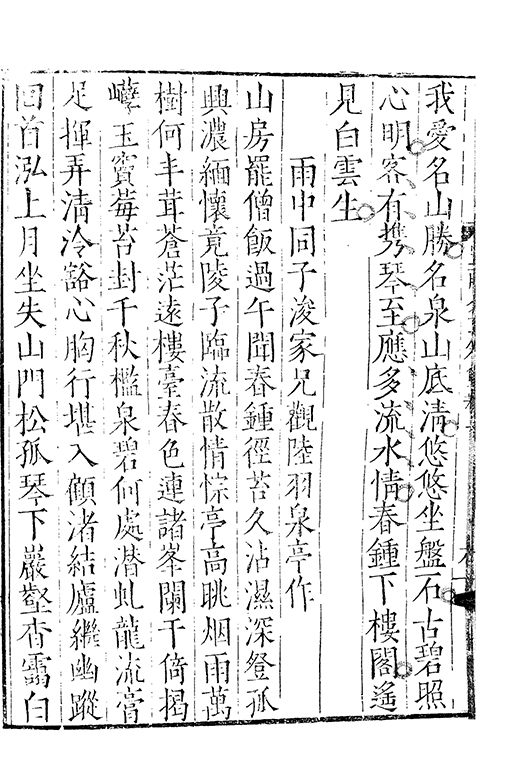 我愛名山勝名泉山底淸悠悠坐盤石古碧照
心明客有携琴至應多流水情春鍾下樓閣遙
見白雲生
雨中同子浚家兄觀陸羽泉亭作
山房罷僧飯過午聞春鍾徑苔久沾濕深登孤
興濃緬懷竟陵子臨流散情悰亭高眺烟雨萬
樹何丰茸蒼茫遠樓臺春色連諸峯闌干倚揭
嶪玉竇莓苔封千秋檻泉碧何處潜虬龍流膏
足揮弄清泠豁心胸行堪入顧渚結廬繼幽蹤
回首泓上月坐失山門松孤琴下巖壑杳靄白